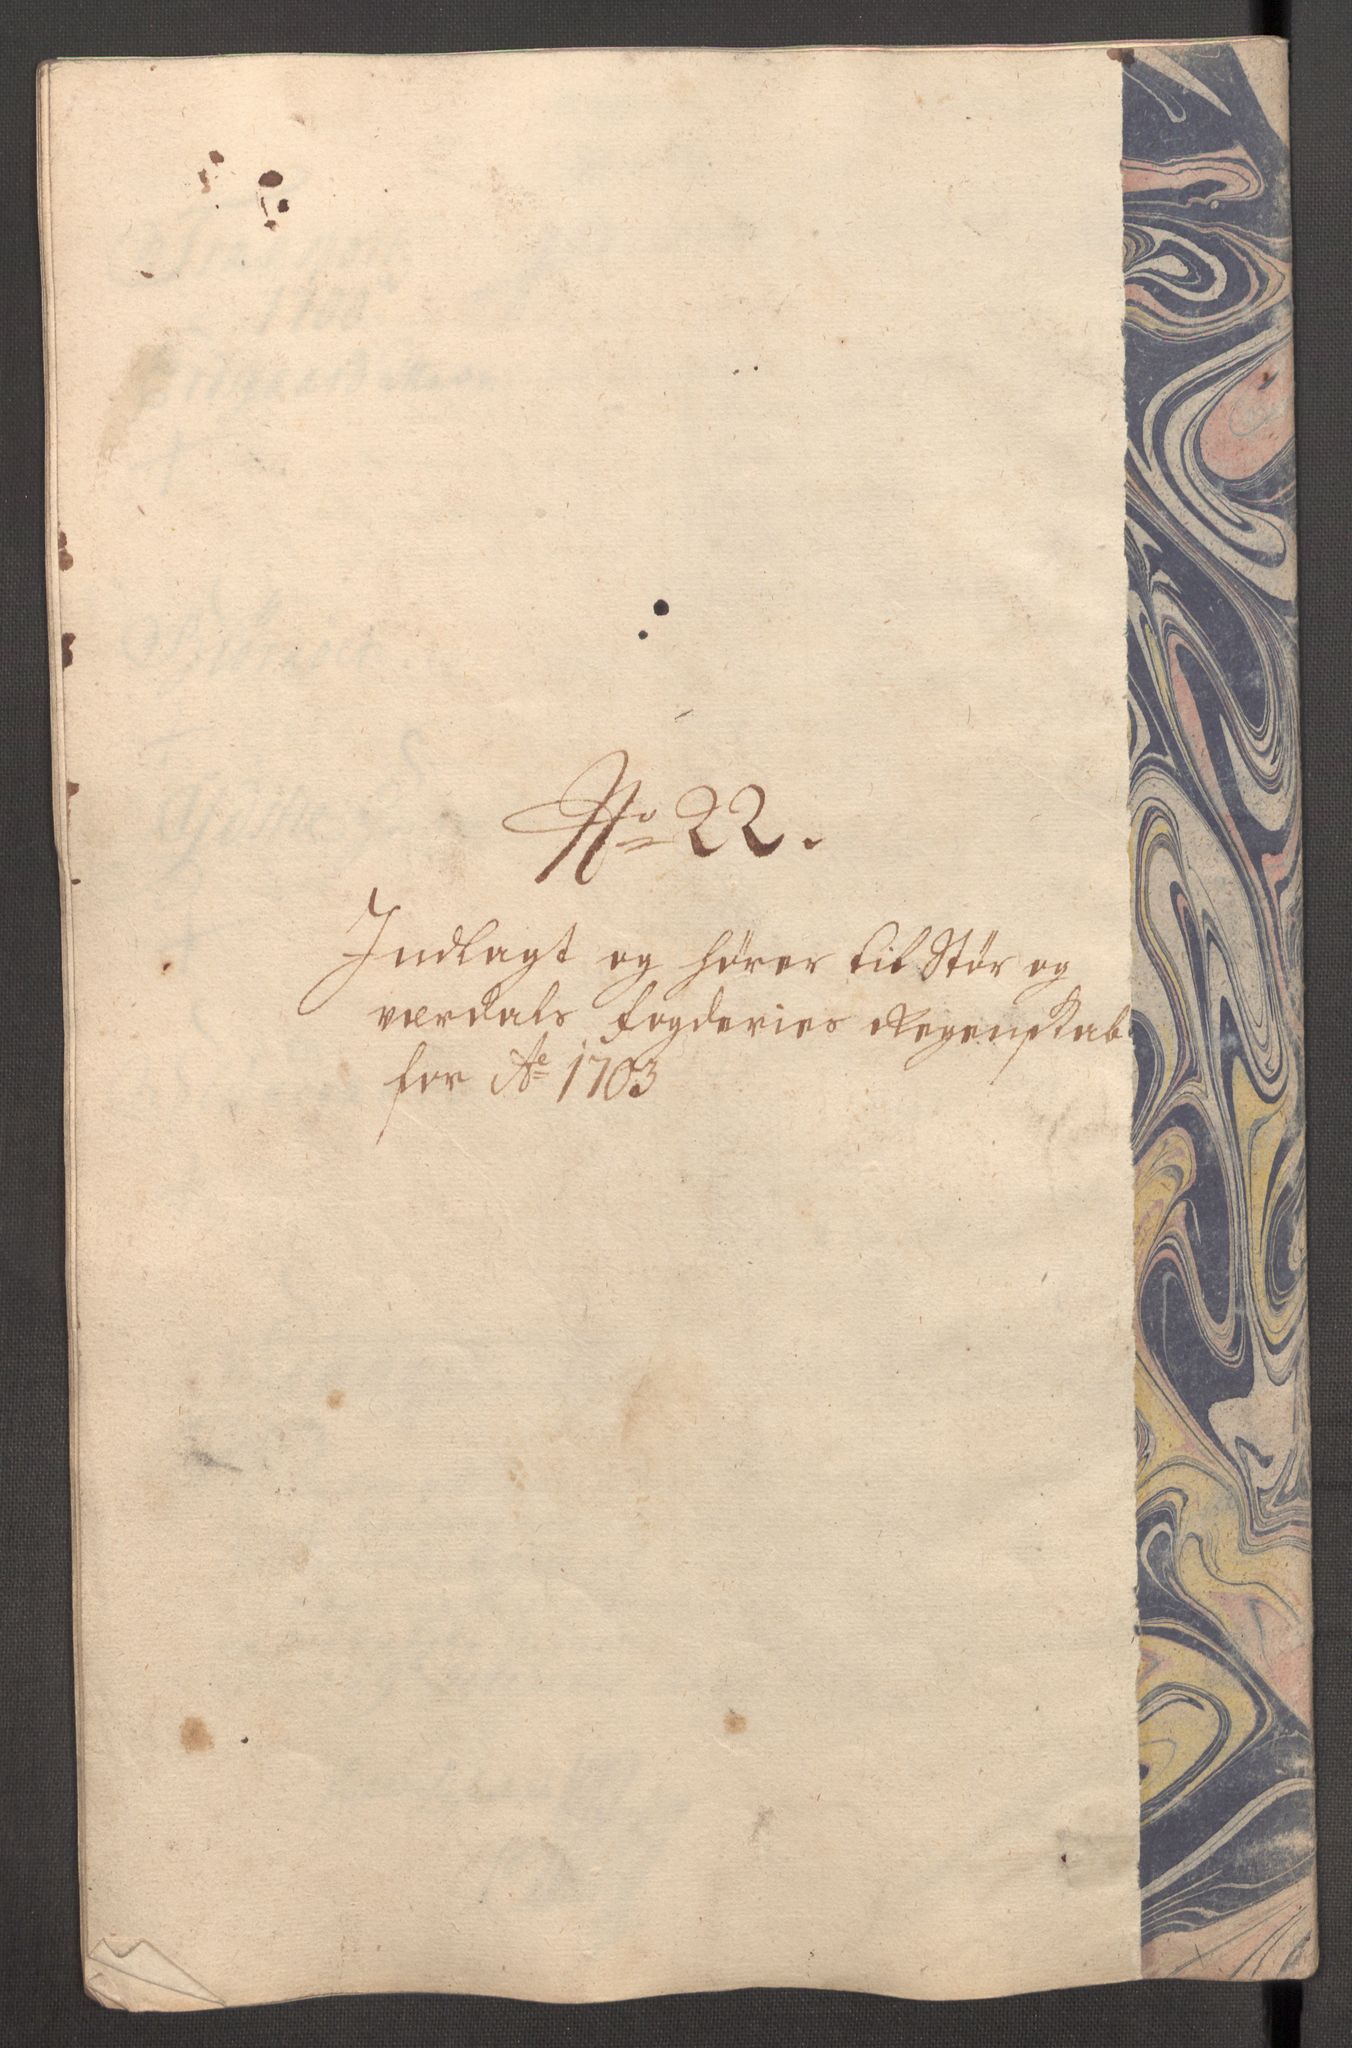 No 22.
Indlagt og hører til Stør og
værdals fogderies Regenskab
for Ao 1703